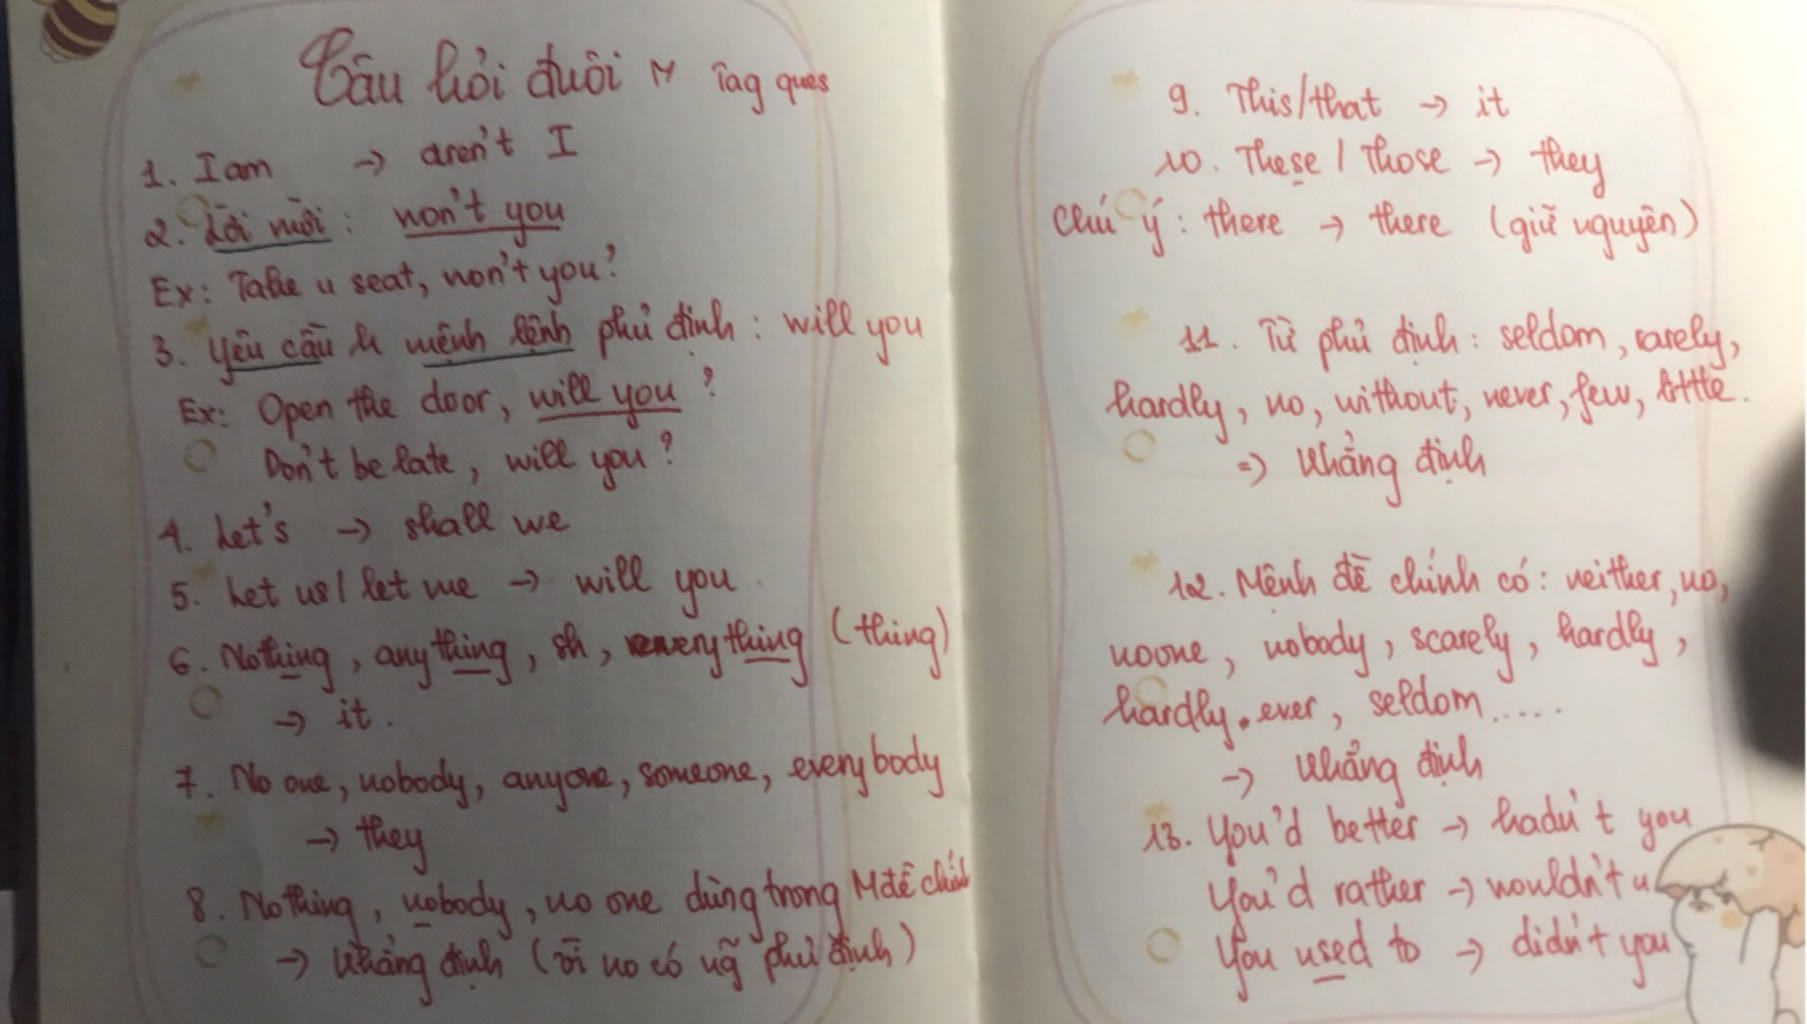 Câu hỏi đuôi ~ Tag ques
1. I am → aren't I
2. Lời mời : won't you
Ex: Take u seat, won't you?
3. Yêu cầu h mệnh lệnh phủ định : will you
Ex: Open the door, will you?
Don't be late, will you?
4. Let's → shall we
5. Let us / let me → will you
6. Nothing, anything, sth, everything (thing)
→ it.
7. No one, nobody, anyone, someone, everybody
→ they
8. Nothing, nobody, no one dùng trong Mđề chính
→ khẳng định (vì no có ng̃ phủ định)
9. This/that → it
10. These / Those → they
Chú ý : there → there (giữ nguyên)
11. Từ phủ định : seldom, rarely,
hardly, no, without, never, few, little.
=> khẳng định
12. Mệnh đề chính có : neither, no,
noone, nobody, scarely, hardly,
hardly ever, seldom.....
→ khẳng định
13. You'd better → hadn't you
You'd rather → wouldn't u
You used to → didn't you